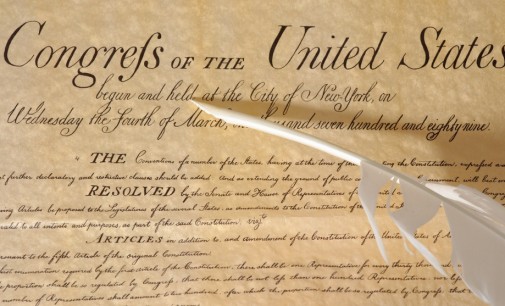 Congreſs OF THE United States
begun and held at the City of New-York, on
Wednesday the Fourth of March, one thousand seven hundred and eighty nine.
THE Conventions of a number of the States, having at the time of the Constitution, expressed a
further declaratory and restrictive clauses should be added. And as extending the ground of public will best
RESOLVED by the Senate and House of Representatives of the
Articles be proposed to the Legislatures of the several States, as amendments to the Constitution of the United
to all intents and purposes, as part of the said Constitution; vizt.
ARTICLES in addition to, and amendment of the Constitution of the United States
to the fifth Article of the original Constitution.
enumeration required by the first article of the Constitution, there shall be one Representative for every thirty
regulated by Congress, that there shall be not less than one hundred Representatives, nor
number of Representatives shall amount to two hundred, after which the proportion shall be so regulated by Congress, that